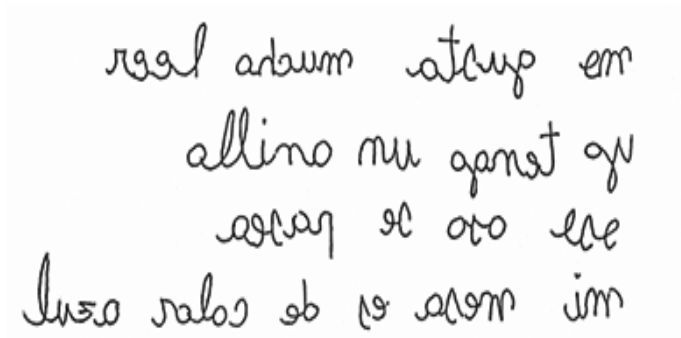 me gusta mucho leer
yo tengo un anillo
ese oso se pasea
mi mesa es de color azul